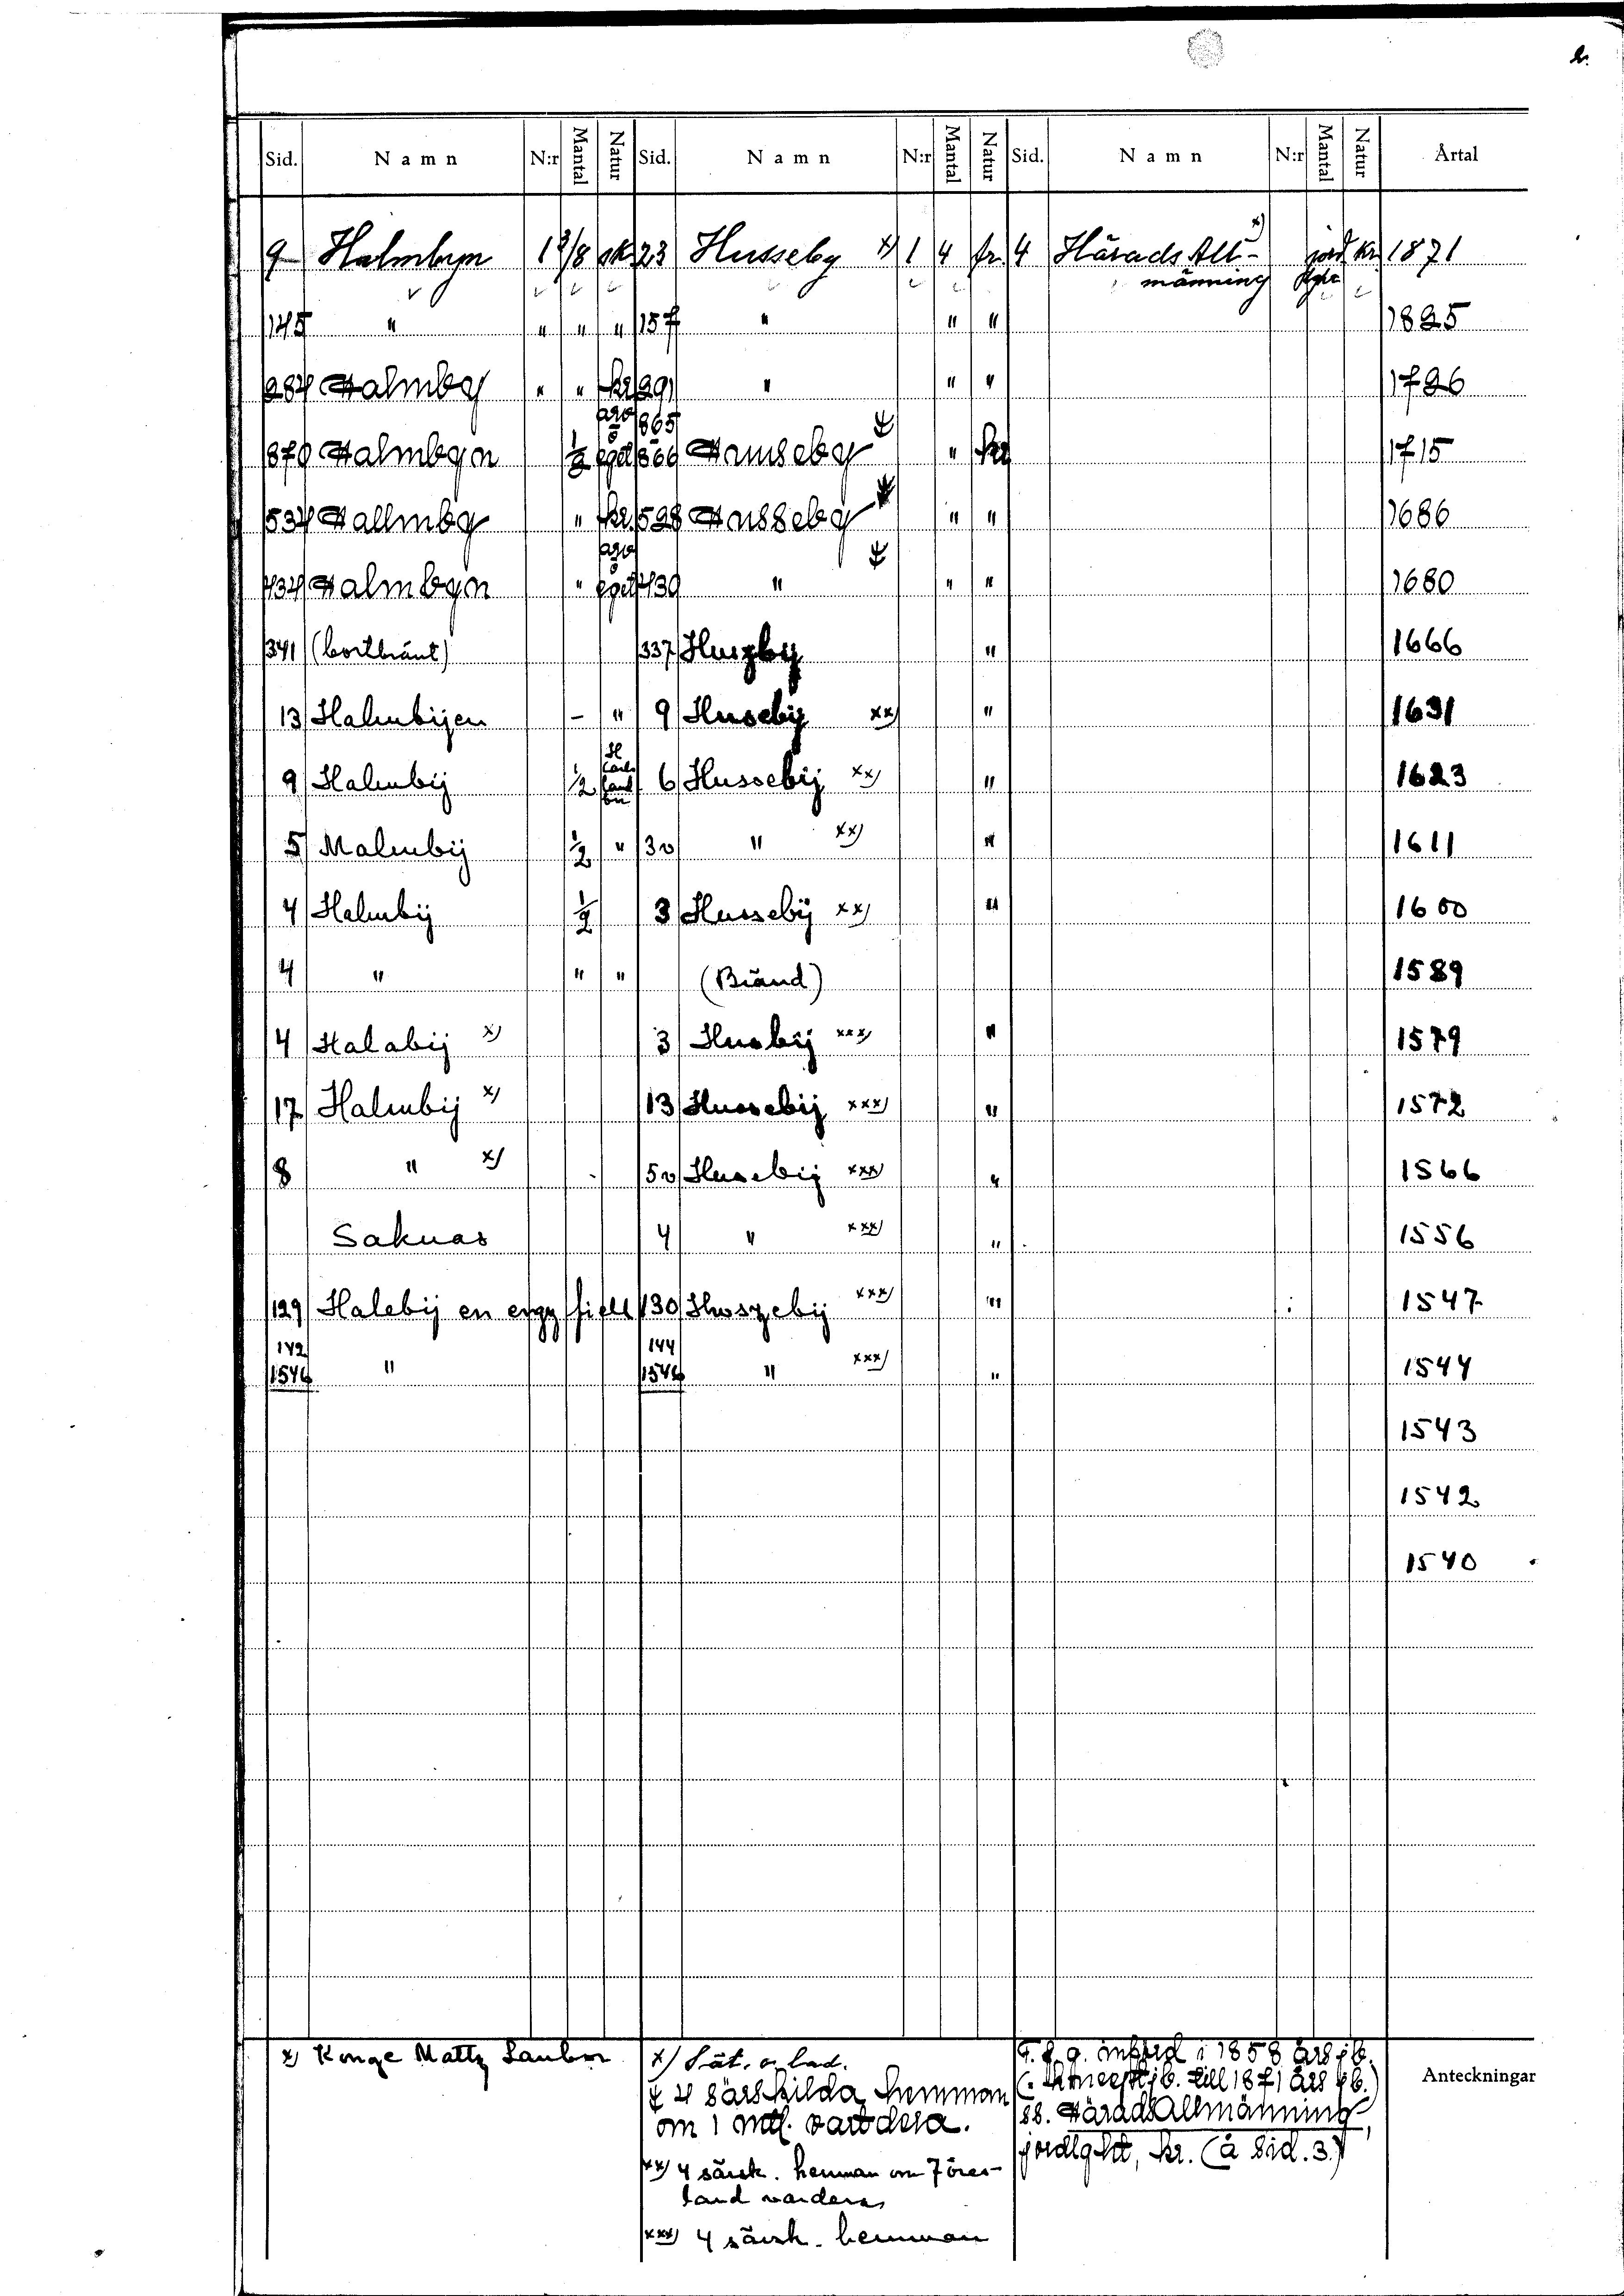 Sid. Namn N:r Mantal Natur Sid. Namn N:r Mantal Natur Sid. Namn N:r Mantal Natur Årtal
9 Halmbyn 1 3/8 sk 23 Husseby x) 1 4 fr. 4 Härads All- x) jord kr. 1871
männing
145 " " " " 157 " " " 1825
284 Halmby " " kr. 291 " " " 1726
arv 865
870 Halmbyn 1/2 o egit 866 Hamseby " kr 1715
534 Hallmby " kr. 528 Husseby " " 1686
arv
434 Halmbyn " egit 430 " " " 1680
341 (bortbränt) 337 Huszby " 1666
13 Halmbijen - " 9 Husebij xx) " 1631
9 Halmbij 1/2 6 Hussebij xx) " 1623
5 Malmbij 1/2 " 3v " xx) " 1611
4 Halmbij 1/2 3 Hussebij xx) " 1600
4 " " " (Bränd) 1589
4 Halabij x) 3 Husbij xxx) " 1579
17 Halmbij x) 13 Hussebij xxx) " 1572
8 " x) 5v Husebij xxx) " 1566
Saknas 4 " xxx) " 1556
129 Halebij en engz fiell 130 Huszebij xxx) " 1547
142 144
1546 " 1546 " xxx) " 1544
1543
1542
1540
x) Konge Mattz Landbor
x) Sät. o lad.
4 särskilda hemman
om 1 mtl. vartdera.
xx) 4 särsk. hemman om 7 öres-
land vardera
xxx) 4 särsk. hemman
F. g. g. införd i 1858 års jb.
jb. till 1871 års jb.)
ss. HäradsAllmänning,
jordlght, kr. (å sid. 3.)
Anteckningar